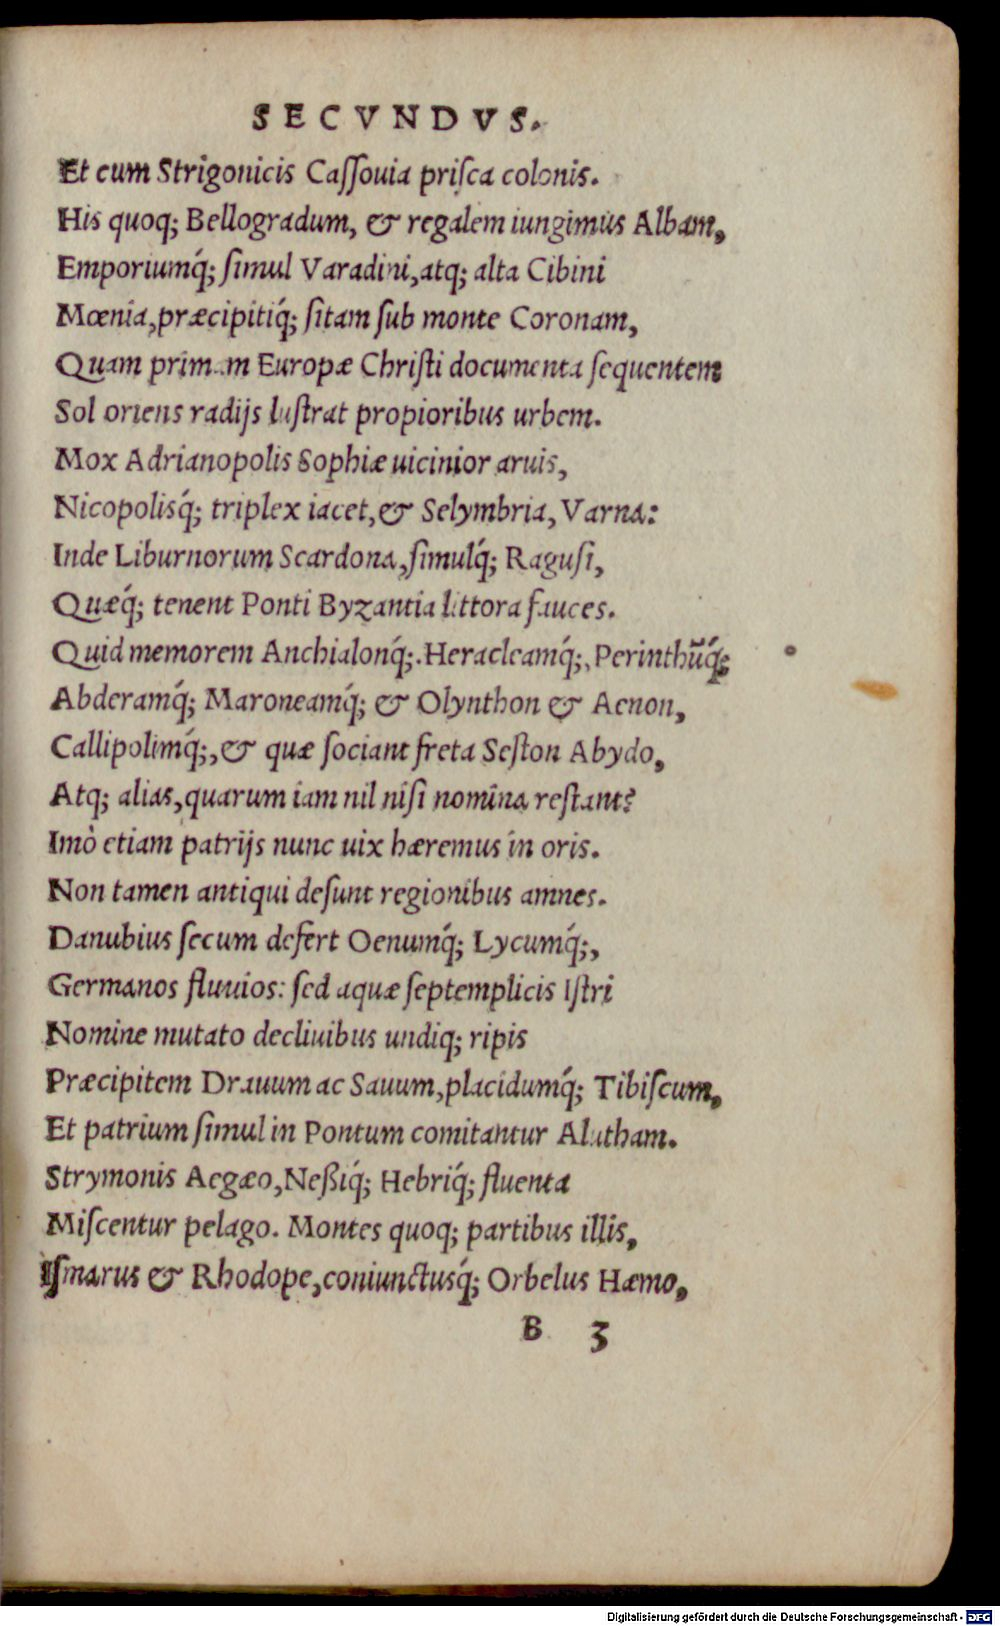 SECVNDVS.
Et cum Strigonicis Caſſouia priſca colonis.
His quoq; Bellogradum, & regalem iungimus Albam,
Emporiumq́; ſimul Varadini, atq; alta Cibini
Mœnia, præcipitiq́; ſitam ſub monte Coronam,
Quam primam Europæ Chriſti documenta ſequentem
Sol oriens radijs luſtrat propioribus urbem.
Mox Adrianopolis Sophiæ uicinior aruis,
Nicopolisq́; triplex iacet, & Selymbria, Varna:
Inde Liburnorum Scardona, ſimulq́; Raguſi,
Quæq́; tenent Ponti Byzantia littora fauces.
Quid memorem Anchialonq́;. Heracleamq́;, Perinthũq́;
Abderamq́; Maroneamq́; & Olynthon & Aenon,
Callipolimq́;, & quæ ſociant freta Seſton Abydo,
Atq; alias, quarum iam nil niſi nomina reſtant?
Imò etiam patrijs nunc uix hæremus in oris.
Non tamen antiqui deſunt regionibus amnes.
Danubius ſecum defert Oenumq́; Lycumq́;,
Germanos fluuios: ſed aquæ ſeptemplicis Iſtri
Nomine mutato decliuibus undiq; ripis
Præcipitem Drauum ac Sauum, placidumq́; Tibiſcum,
Et patrium ſimul in Pontum comitantur Alutham.
Strymonis Aegæo, Neßiq́; Hebriq́; fluenta
Miſcentur pelago. Montes quoq; partibus illis,
Iſmarus & Rhodope, coniunctusq́; Orbelus Hæmo,
B 3
Digitalisierung gefördert durch die Deutsche Forschungsgemeinschaft - DFG